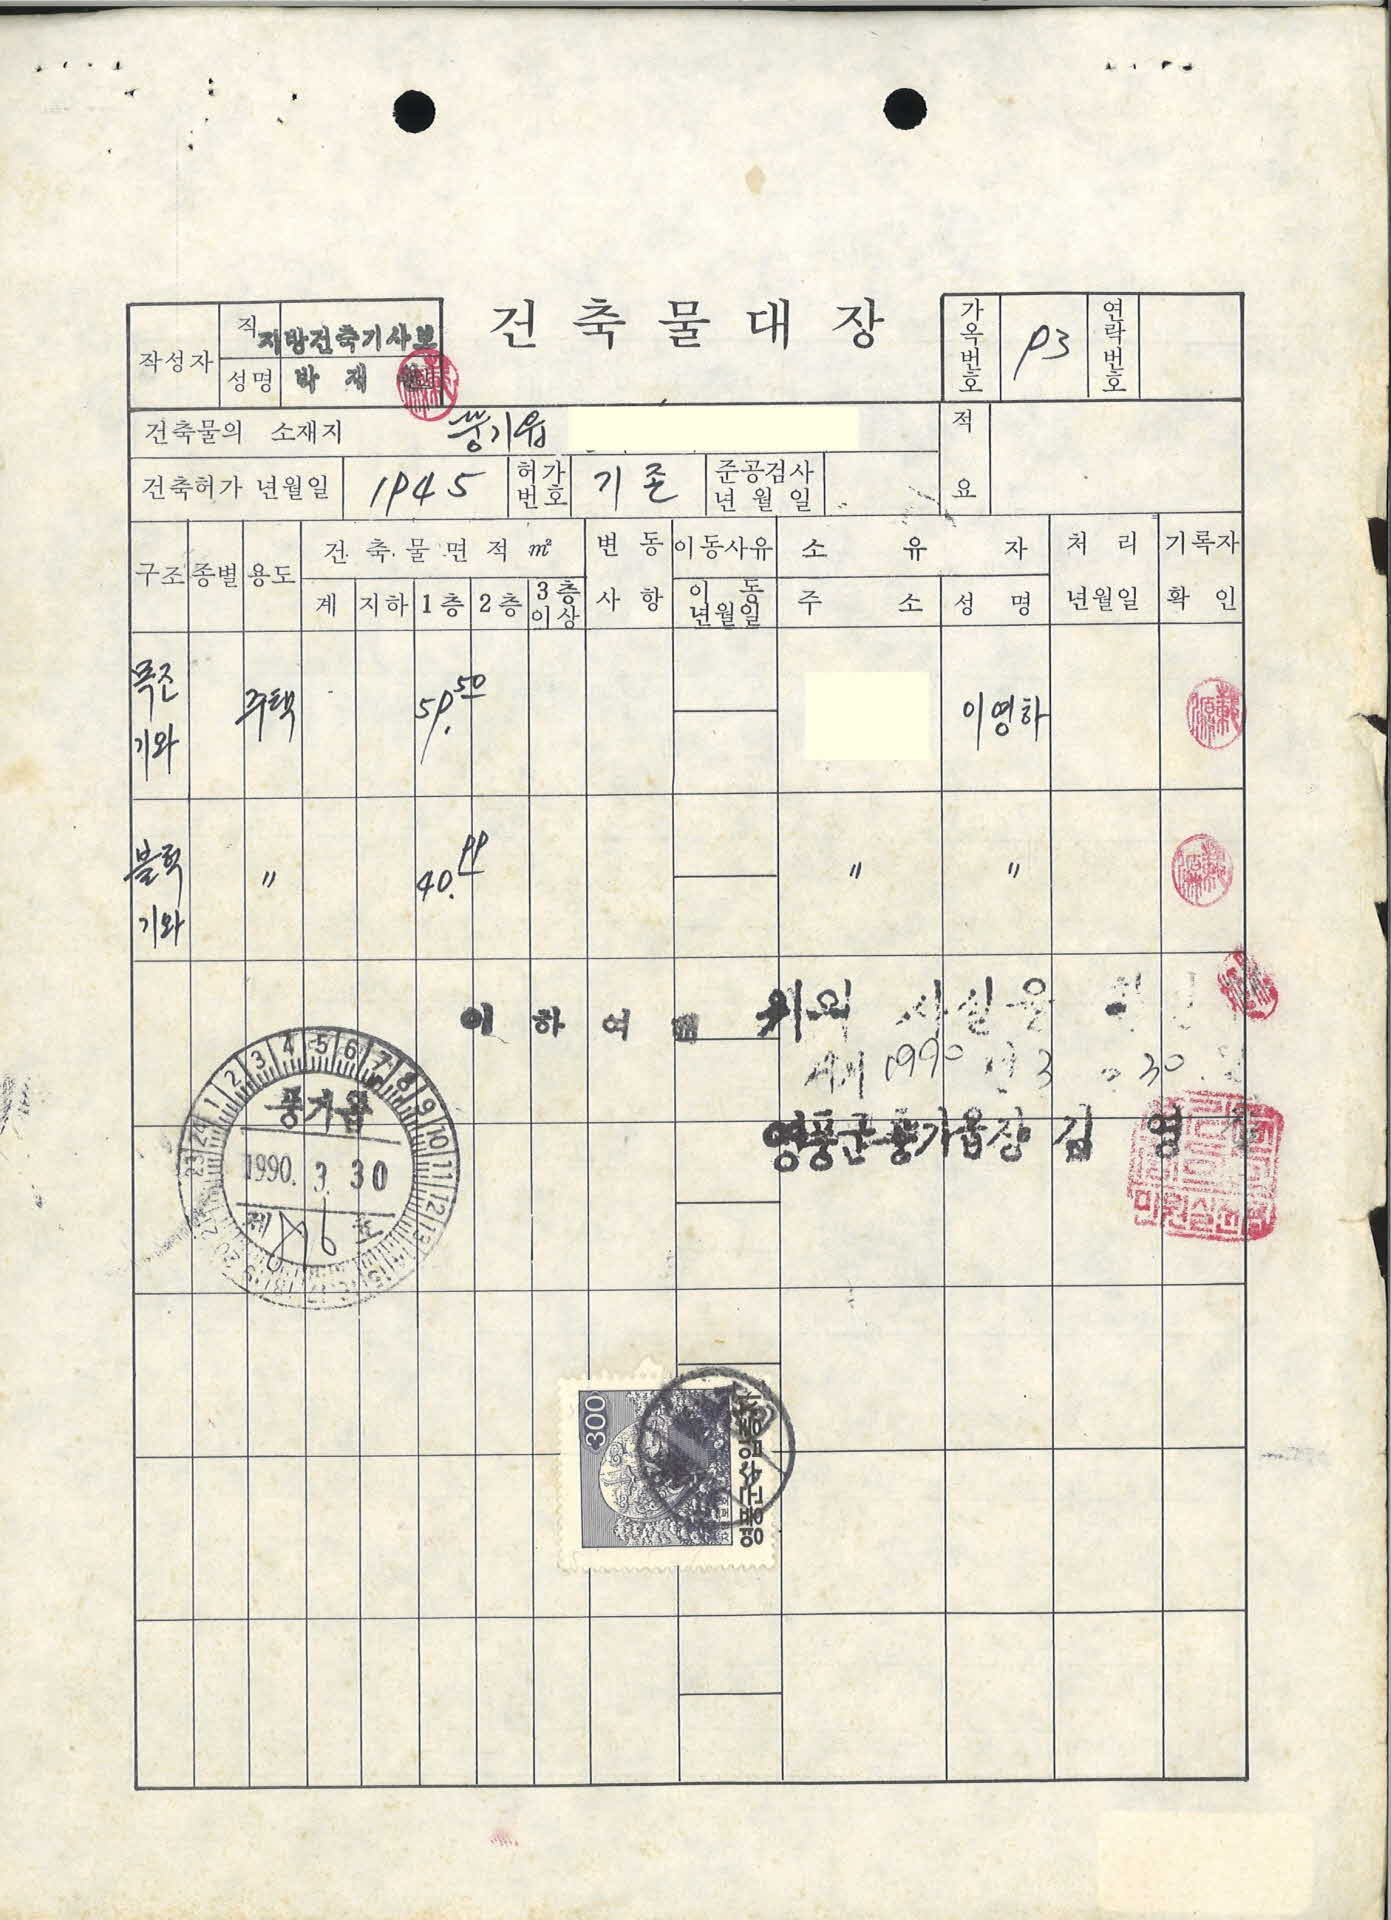 건축물대장
작성자 직 지방건축기사보
성명 박재
가옥번호 93 연락번호
건축물의 소재지 풍기읍
적요
건축허가 년월일 1945 허가번호 기존 준공검사 년월일
구조 종별 용도 건축물면적 ㎡ 변동사항 이동사유 소유자 처리년월일 기록자확인
계 지하 1층 2층 3층이상 이동년월일 주소 성명
목조기와 주택 59.50 이영하
블럭기와 〃 40.99 〃 〃
이하여백
사실을
1990 3 30
영풍군풍기읍장 김영
민원실전용
1 2 3 4 5 6 7 8 9 10 11 12 13
풍기읍
1990. 3. 30
제 호
300
영풍군수입증지